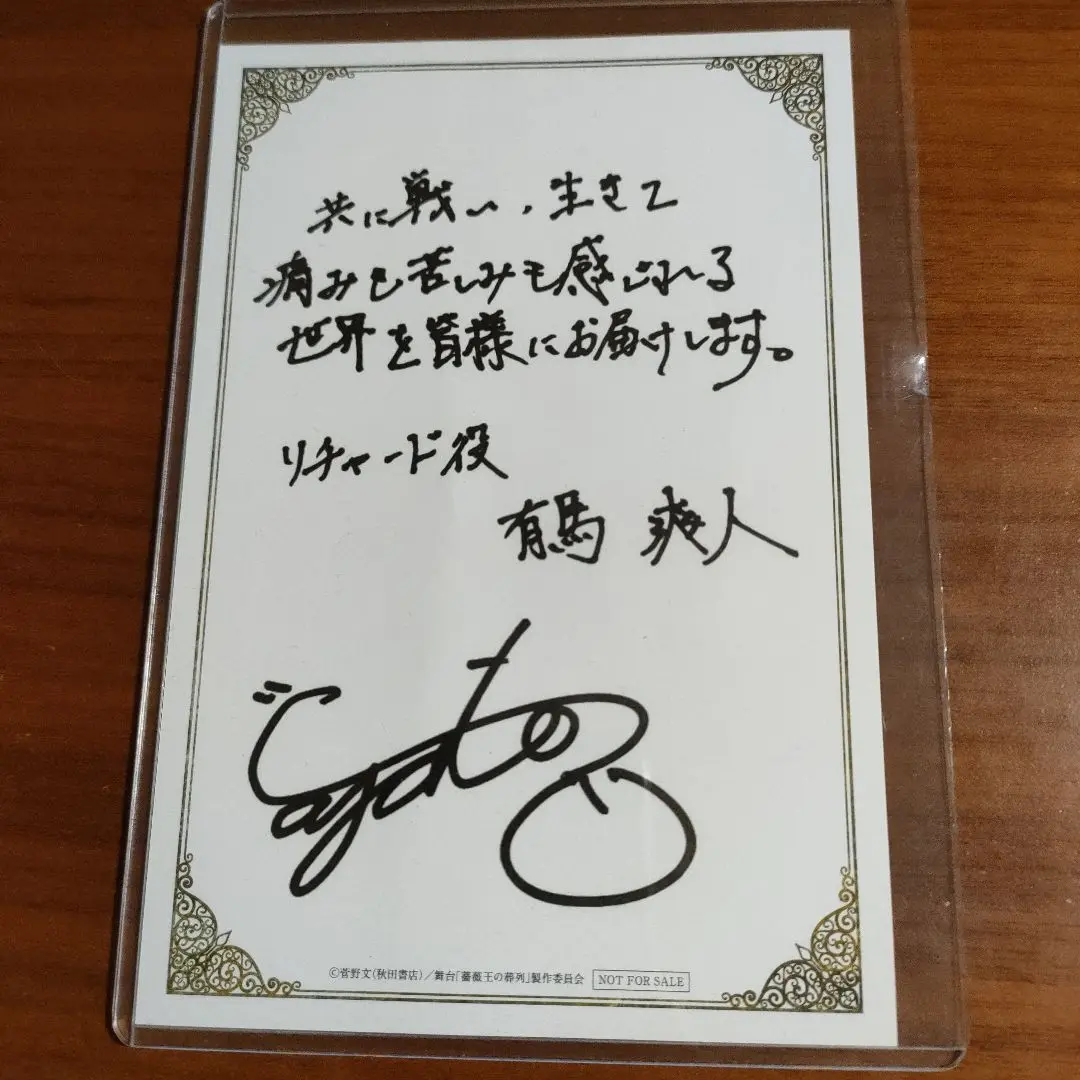 共に戦い、生きて
痛みも苦しみも感じれる
世界を皆様にお届けします。
リチャード役
有馬 爽人
©菅野文(秋田書店)/舞台「薔薇王の葬列」製作委員会 NOT FOR SALE